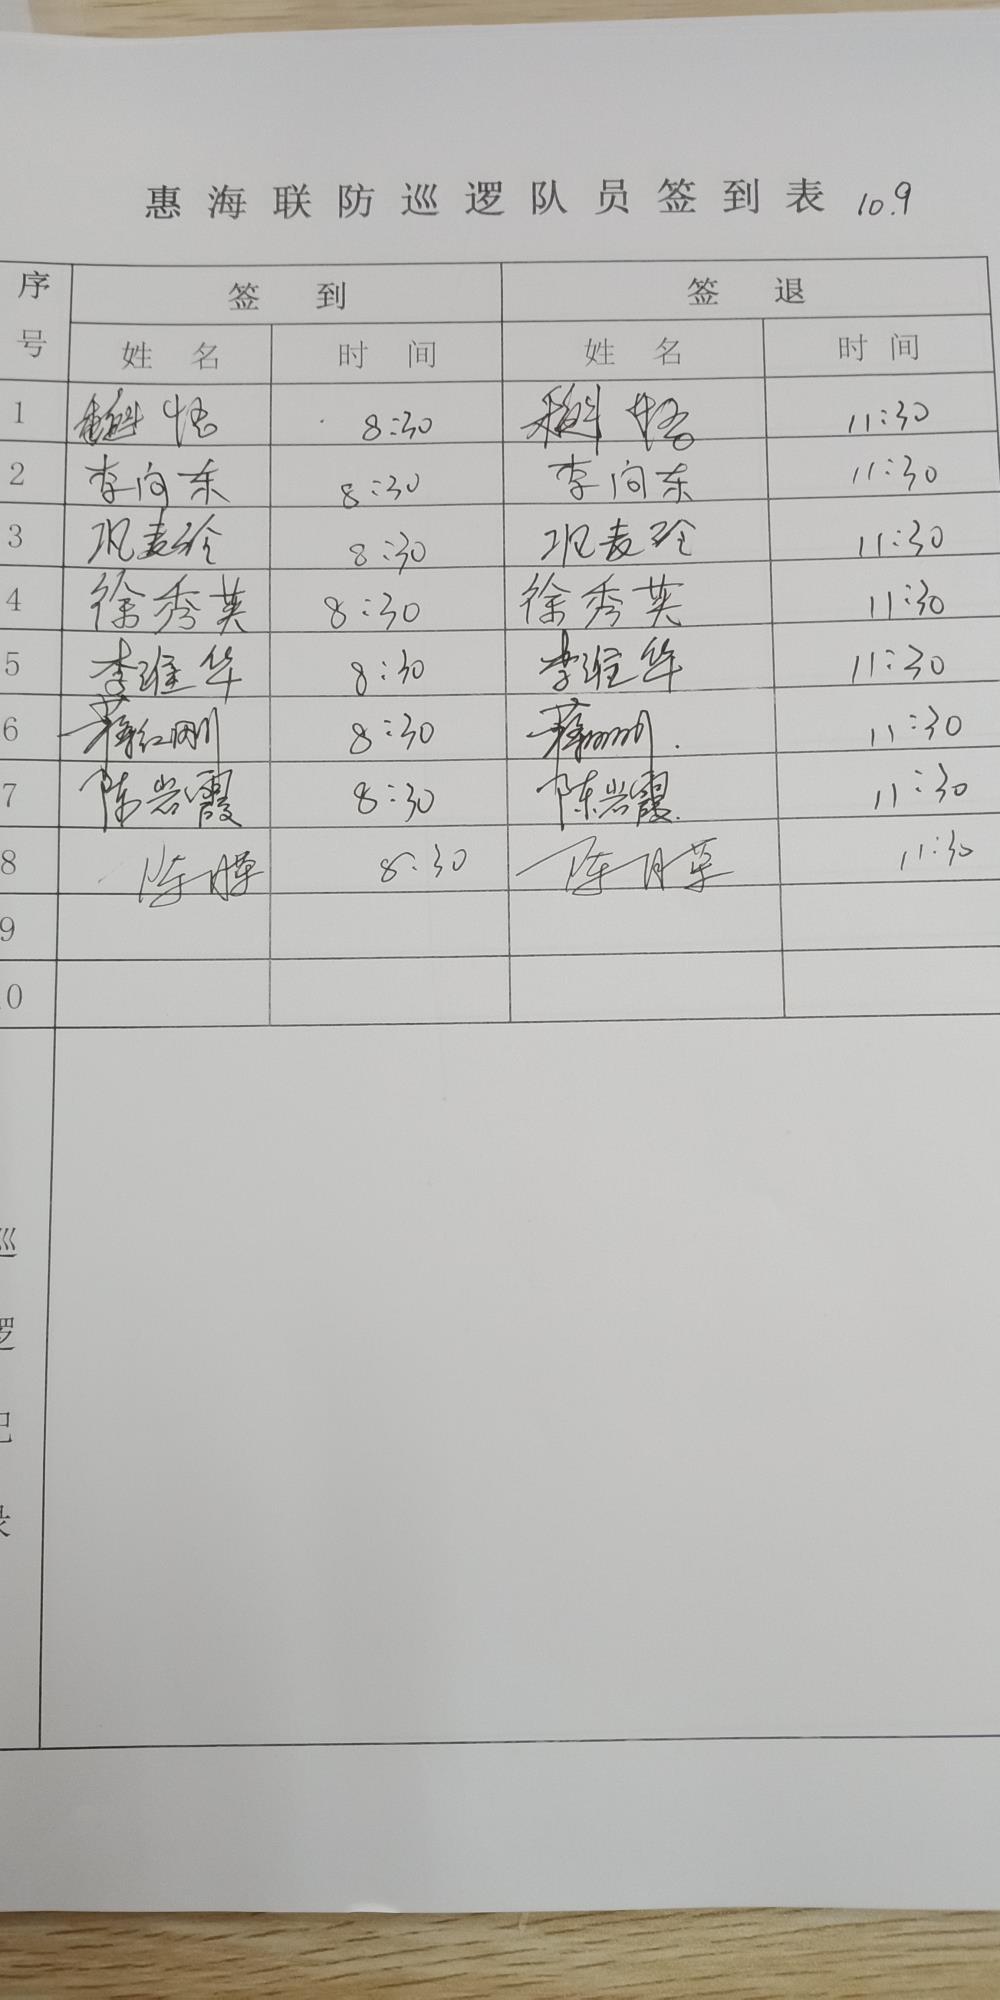 惠海联防巡逻队员签到表 10.9
序号 签到 签退
姓名 时间 姓名 时间
1 8:30 11:30
2 李向东 8:30 李向东 11:30
3 巩麦玲 8:30 巩麦玲 11:30
4 徐秀英 8:30 徐秀英 11:30
5 李维华 8:30 李维华 11:30
6 蒋红刚 8:30 11:30
7 陈岩霞 8:30 陈岩霞 11:30
8 8:30 11:30
9
10
巡逻记录